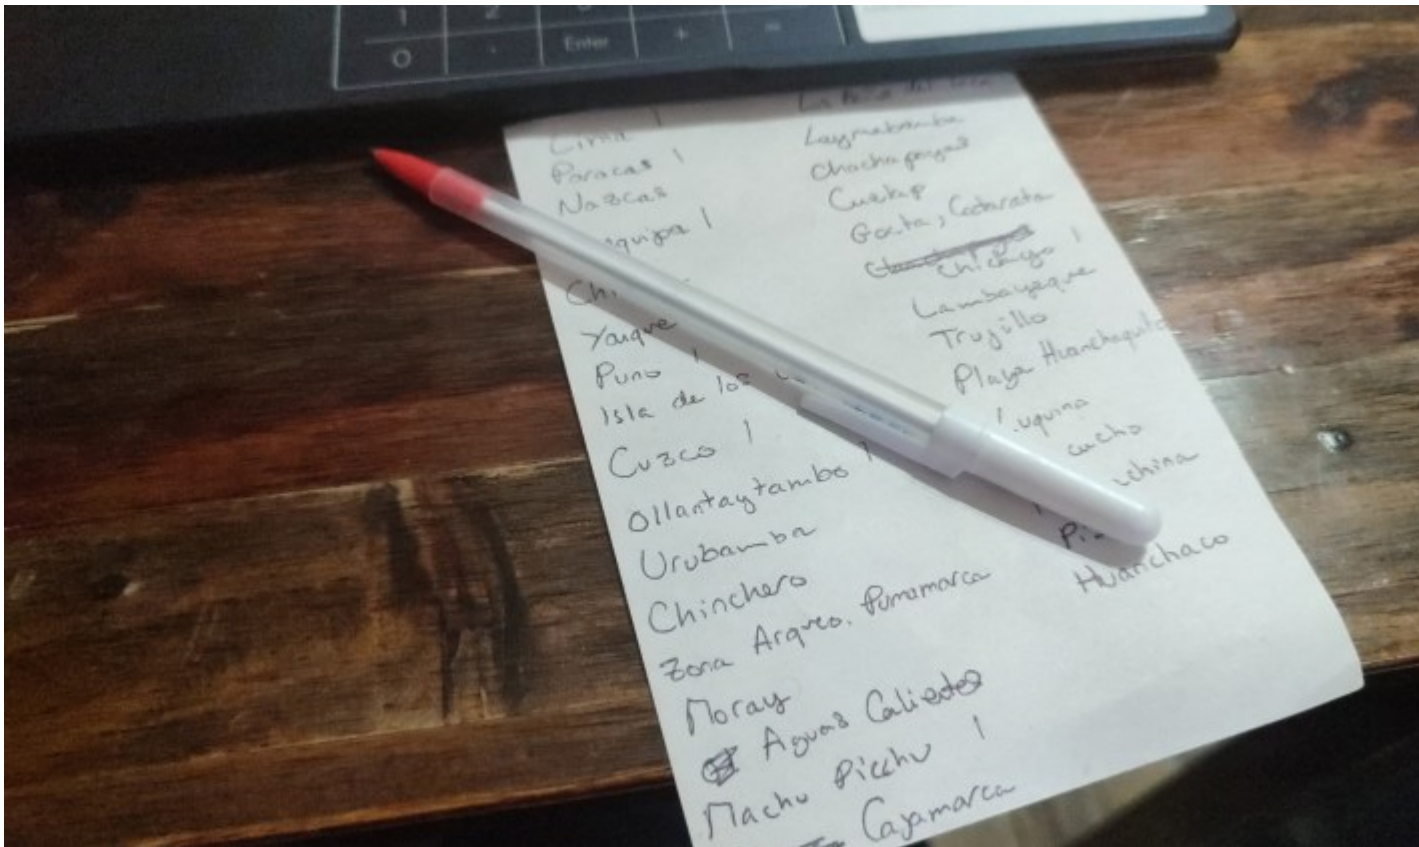 1 2
0 . Enter + -
Lima 1
Paracas 1
Nazcas
quipa 1
Ch
Yanque
Puno 1
Isla de los
Cuzco 1
Ollantaytambo 1
Urubamba
Chinchero
Zona Arqueo. Pumamarca
Moray
Aguas Calientes
Machu Picchu 1
Cajamarca
Laymebamba
Chachapoyas
Cuelap
Gocta, Catarata
Chiclayo 1
Lambayeque
Trujillo
Playa Huanchaquito
uquina
cucho
china
Pi
Huanchaco